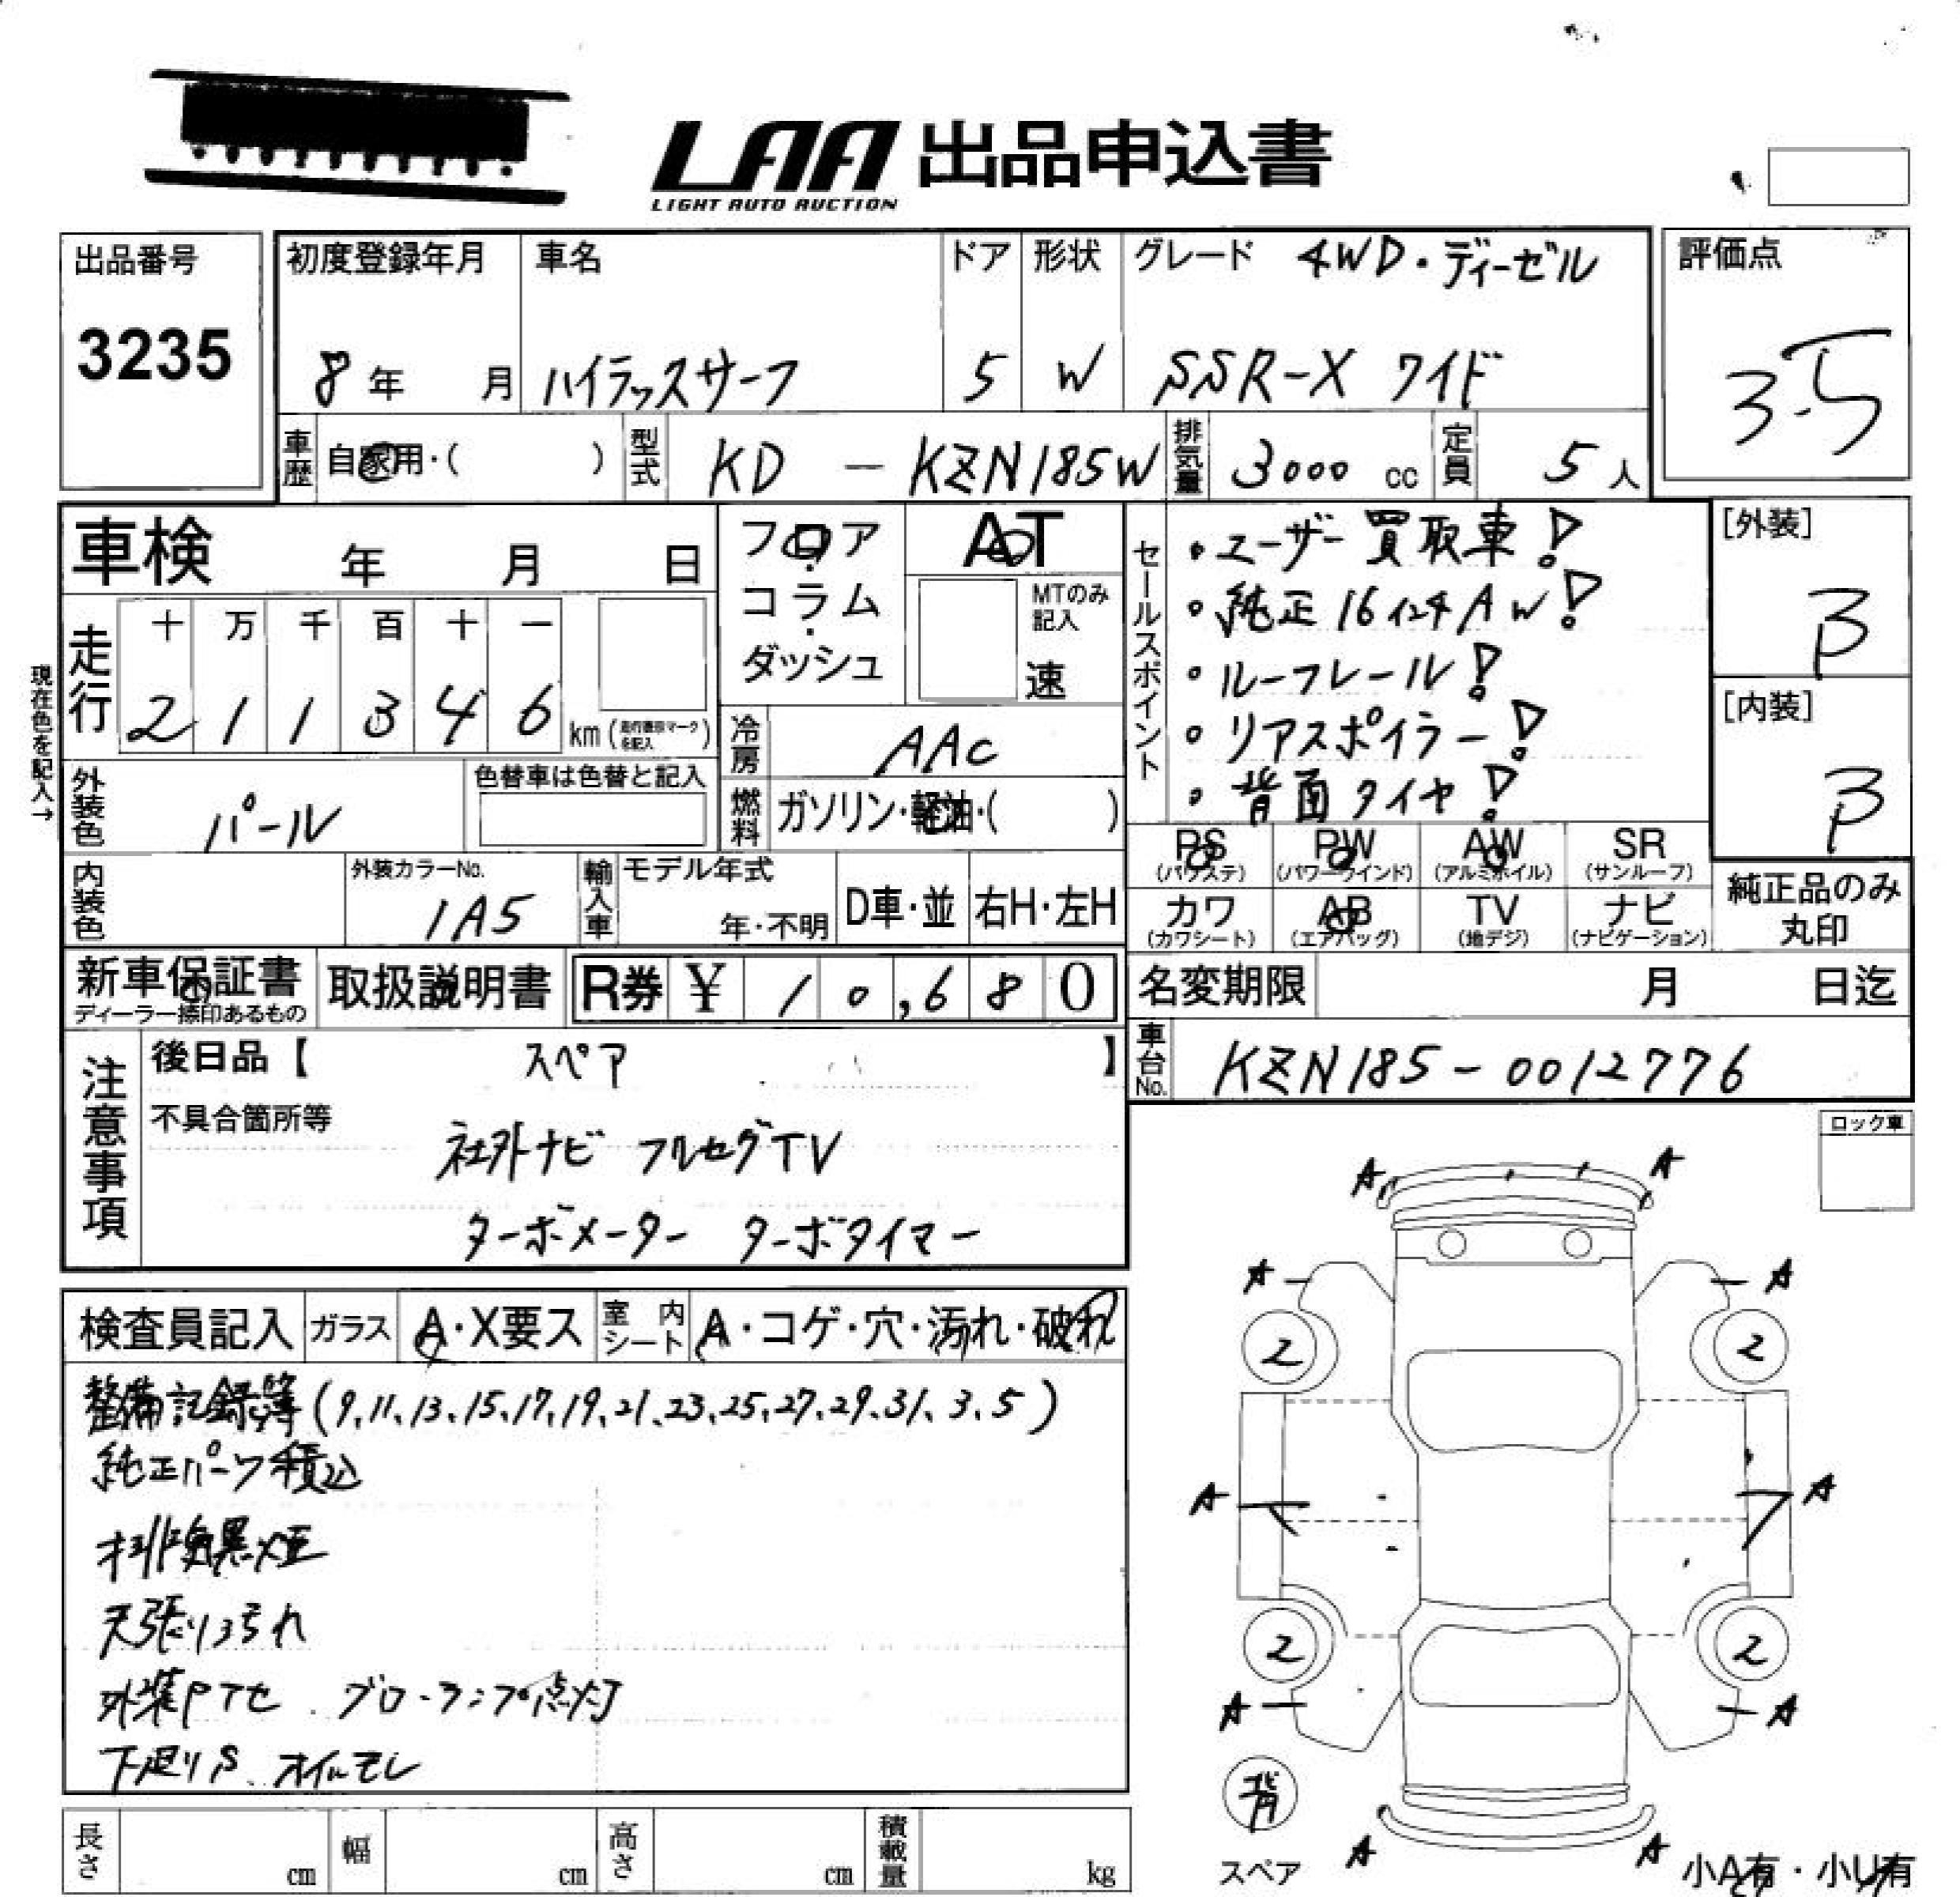 LAA 出品申込書
LIGHT AUTO AUCTION
出品番号
3235
初度登録年月
8年 月
車名
ハイラックスサーフ
ドア
5
形状
W
グレード 4WD・ディーゼル
SSR-X ワイド
評価点
3.5
車歴 自家用・( )
型式 KD - KZN185W
排気量 3000 cc
定員 5人
車検 年 月 日
フロア
コラム
ダッシュ
AT
MTのみ記入
速
セールスポイント
・ユーザー買取車!
・純正16インチAW!
・ルーフレール!
・リアスポイラー!
・背面タイヤ!
[外装]
B
[内装]
B
現在色を記入→
走行
十 万 千 百 十 一
2 1 1 3 4 6 km
冷房 AAC
外装色 パール
色替車は色替と記入
燃料 ガソリン・軽油・( )
内装色
外装カラーNo.
1A5
輸入車
モデル年式
年・不明
D車・並
右H・左H
PS (パワステ)
PW (パワーウインド)
AW (アルミホイル)
SR (サンルーフ)
カワ (カワシート)
AB (エアバッグ)
TV (地デジ)
ナビ (ナビゲーション)
純正品のみ
丸印
新車保証書
ディーラー捺印あるもの
取扱説明書
R券 ¥ 10,680
名変期限 月 日迄
車台No. KZN185-0012776
注意事項
後日品【 スペア 】
不具合箇所等
社外ナビ フルセグTV
ターボメーター ターボタイマー
ロック車
検査員記入 ガラス A・X要ス 室内シート A・コゲ・穴・汚れ・破れ
整備記録簿(9、11、13、15、17、19、21、23、25、27、29、31、3、5)
純正パーツ積込
排気黒煙
天張り汚れ
外装Pアセ グローランプ点灯
下廻りS オイルモレ
A A
A A
2 2
A A
2 2
A A
背
スペア
A A
小A有・小U有
長さ cm
幅 cm
高さ cm
積載量 kg